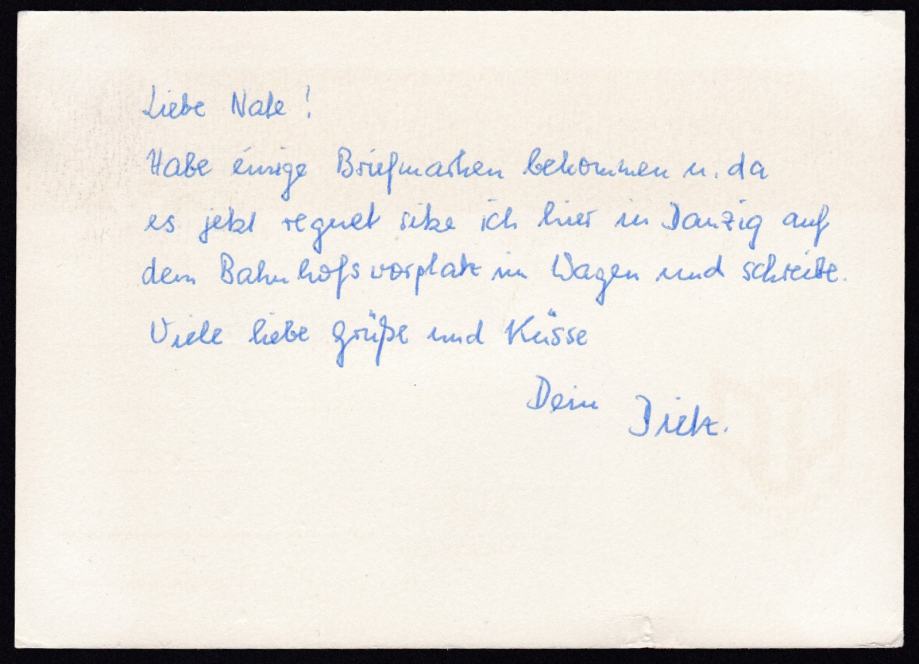 Liebe Nate!
Habe einige Briefmarken bekommen u. da
es jetzt regnet sitze ich hier in Danzig auf
dem Bahnhofsvorplatz im Wagen und schreibe.
Viele liebe Grüße und Küsse
Dein Dietz.